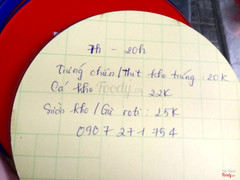 7h - 20h
Trứng chiên / Thịt kho trứng : 20K
Cá kho 22K
Sườn kho / Gà roti : 25K
0907 271 754
foody.vn